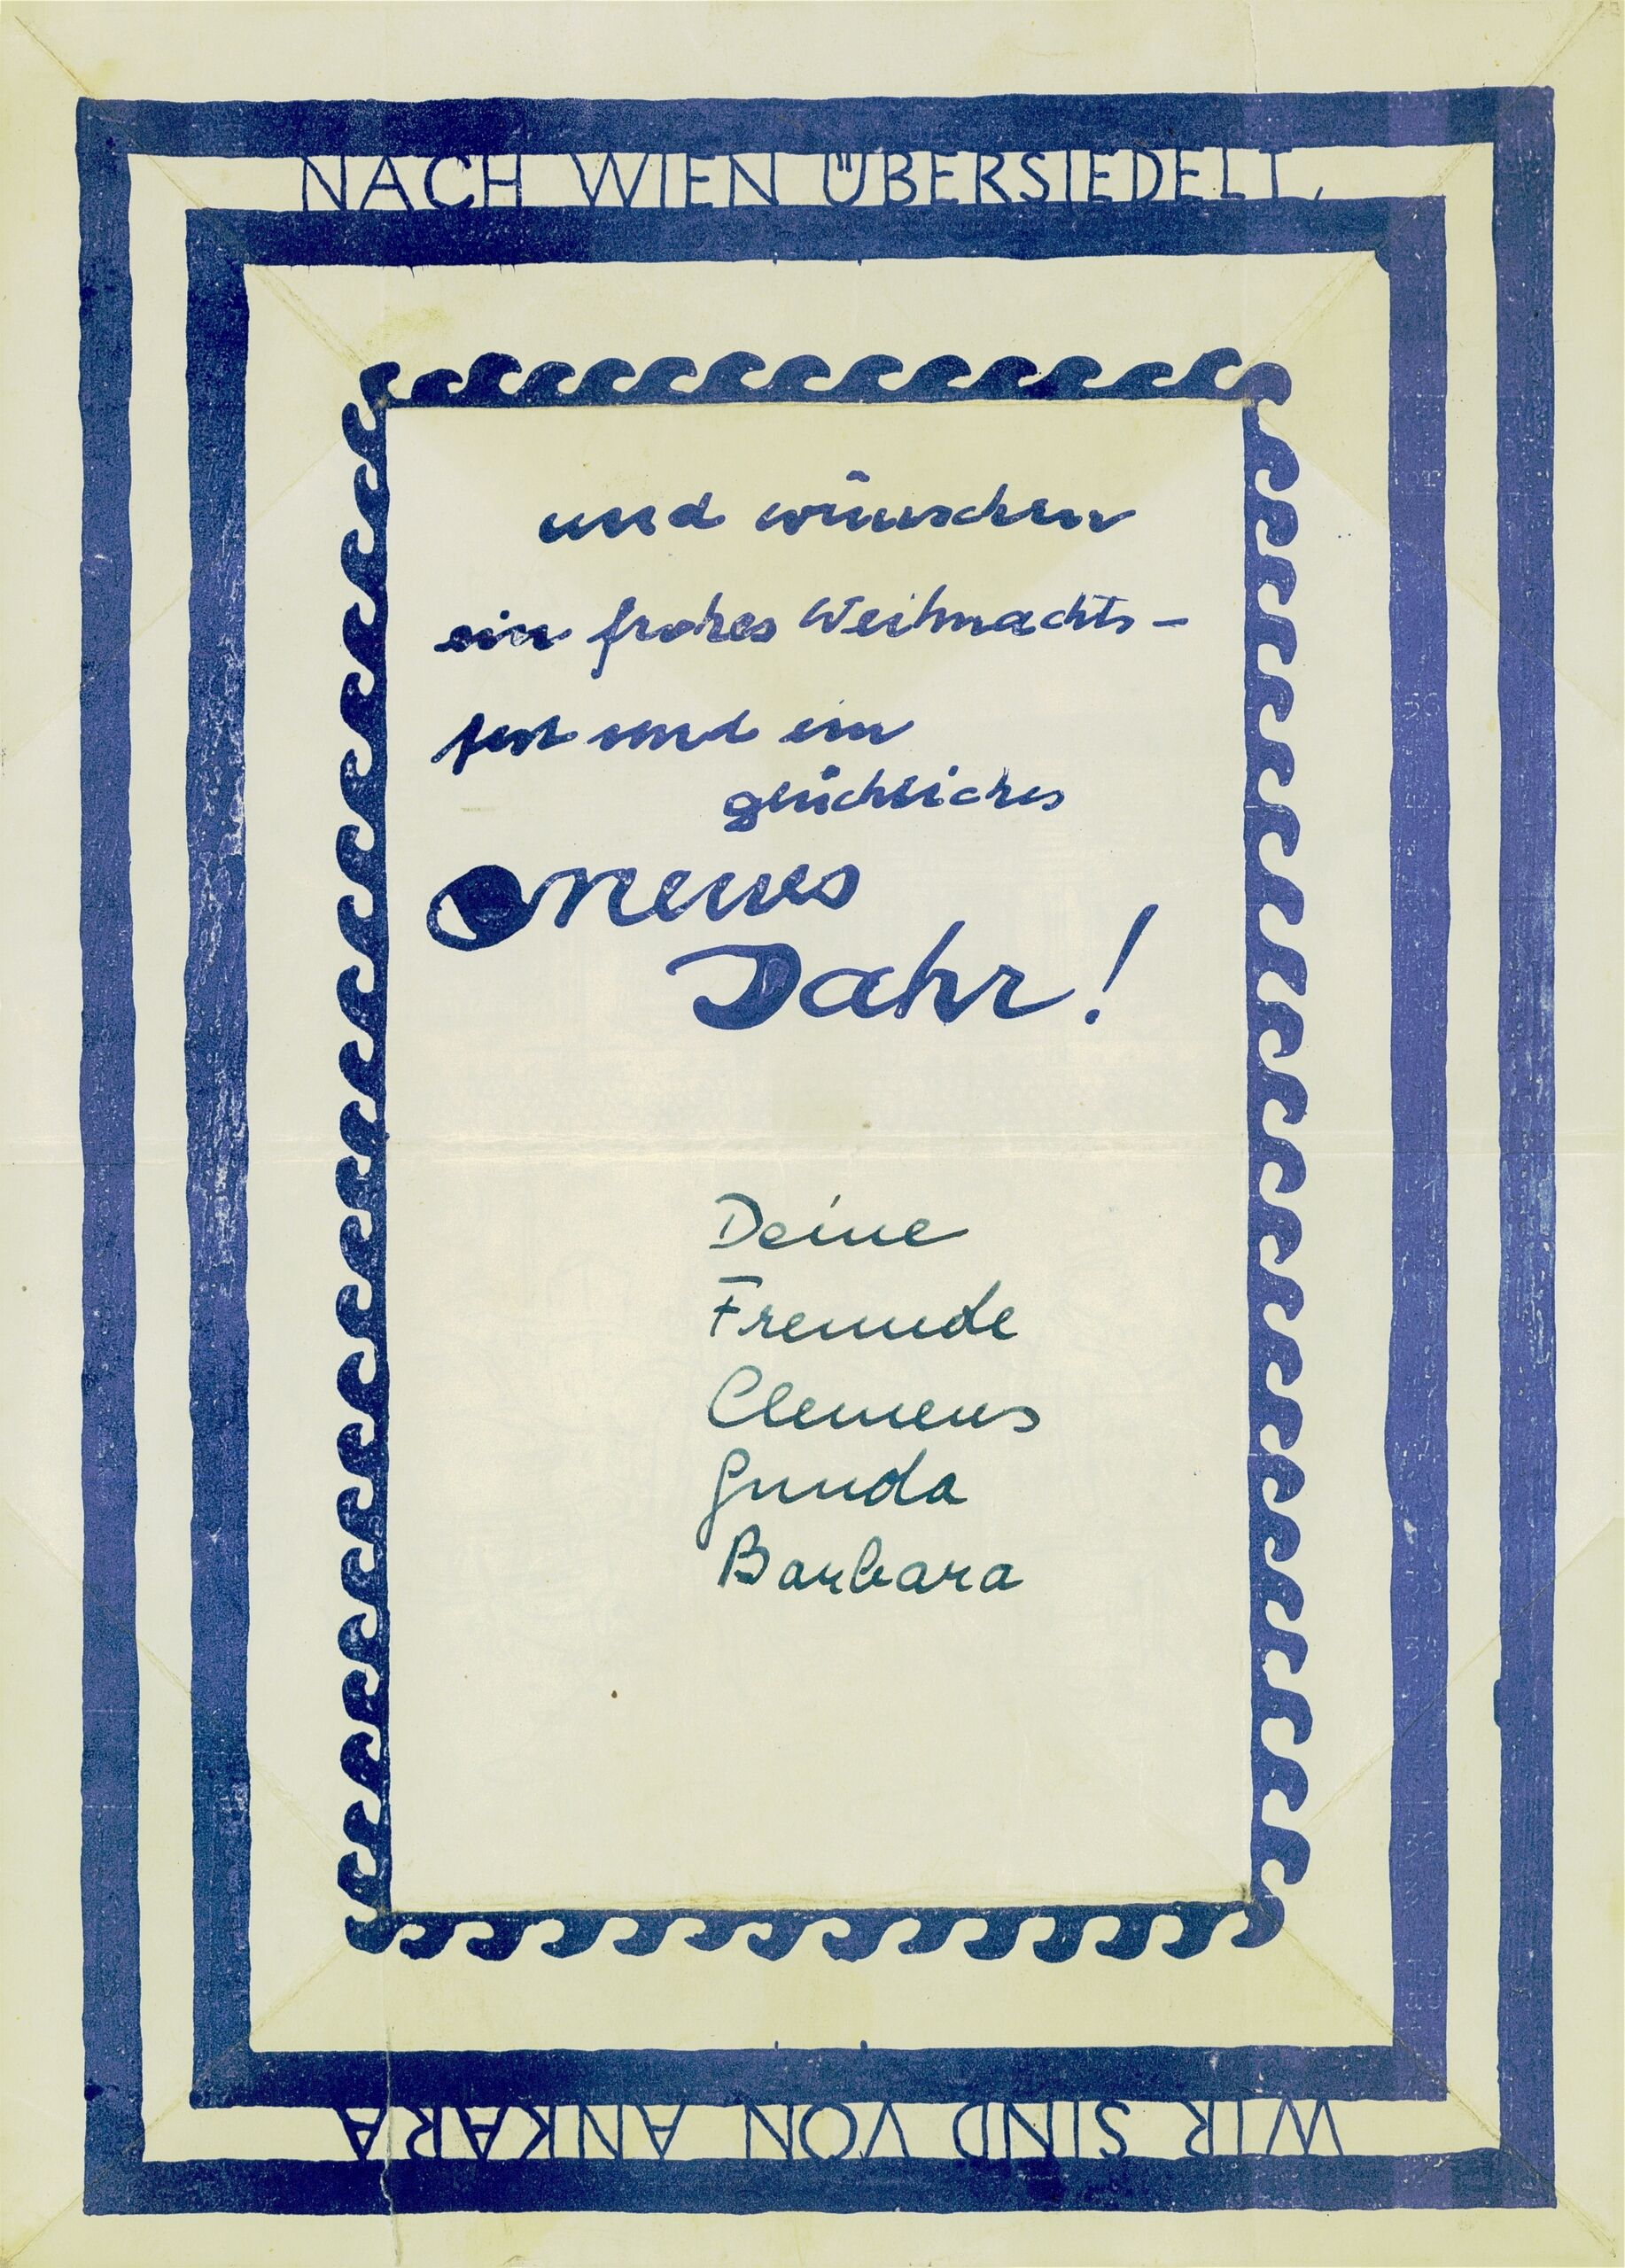 NACH WIEN ÜBERSIEDELT,
und wünschen
ein frohes Weihnachts-
fest und ein
glückliches
neues
Jahr!
Deine
Freunde
Clemens
Gunda
Barbara
WIR SIND VON ANKARA